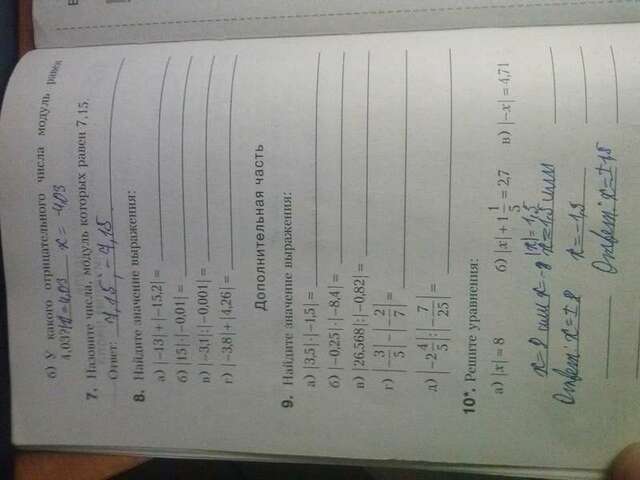 б) У какого отрицательного числа модуль равен
4,03? x = -403
7. Назовите числа, модуль которых равен 7,15.
Ответ: 7,15; -7,15
8. Найдите значение выражения:
а) |-13| + |-15,2| =
б) |15| · |-0,01| =
в) |-3,1| : |-0,001| =
г) |-3,8| + |4,26| =
Дополнительная часть
9. Найдите значение выражения:
а) |3,5| · |-1,5| =
б) |-0,25| · |-8,4| =
в) |26,568| : |-0,82| =
г) |-3/5| - |-2/7| =
д) |-2 4/5| : |-7/25| =
10*. Решите уравнения:
а) |x| = 8
б) |x| + 1 1/5 = 2,7
в) |-x| = 4,71
x = 8 или x = -8
|x| = 1,5
x = 1,5 или
Ответ: x = ± 8
x = -1,5
Ответ: x = ± 1,5